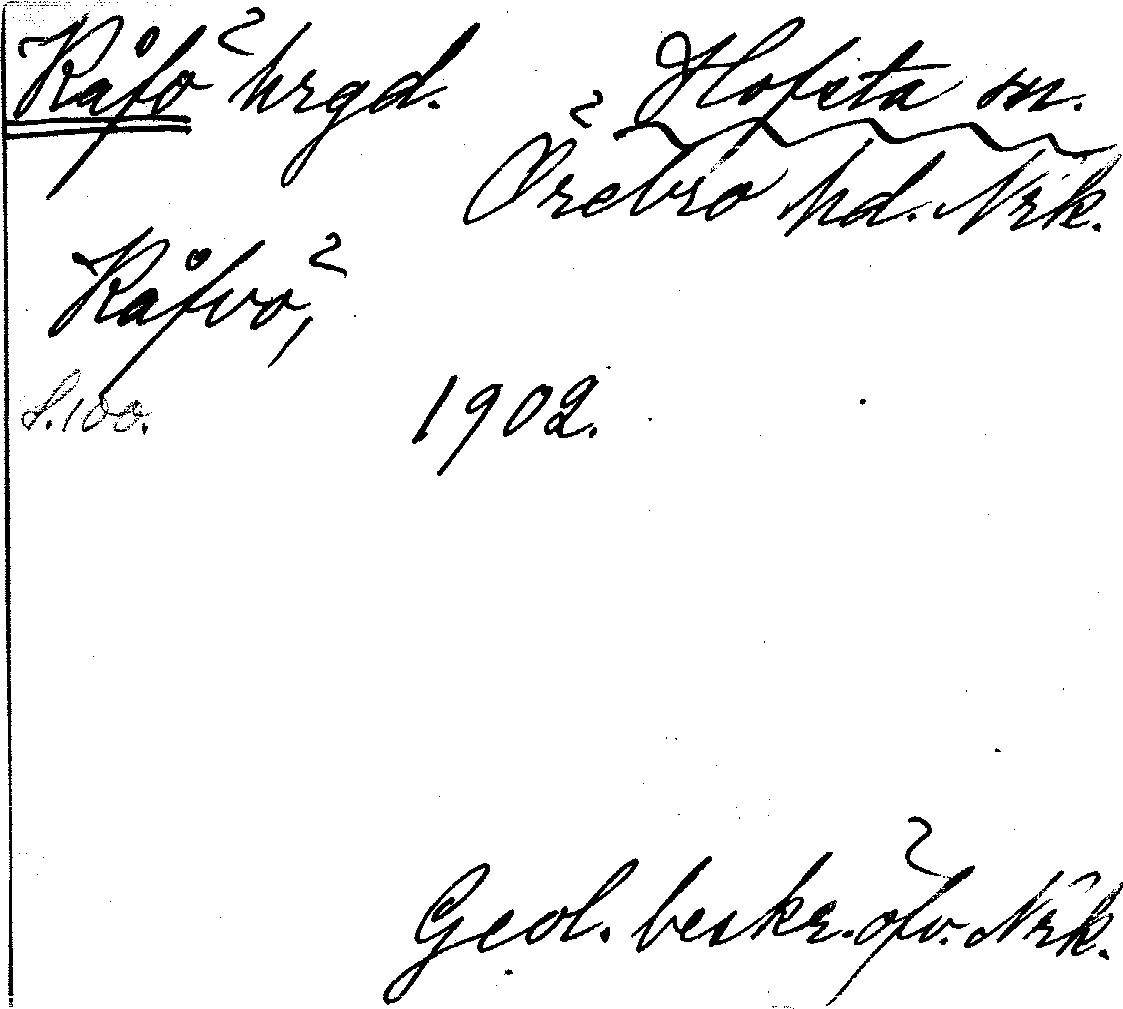 Råfö hrgd. Hofsta sn.
Örebro hd. Nrk.
Råfvö,
S. 100. 1902.
Geol. beskr. öfv. Nrk.